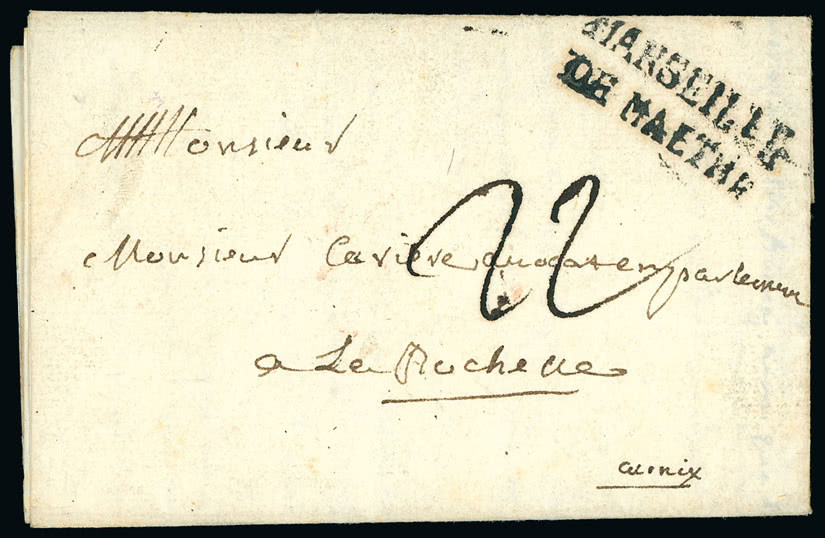 MARSEILLE
DE MALTHE
Monsieur
Monsieur Cariere avocat en parlement
22
a La Rochelle
aunix